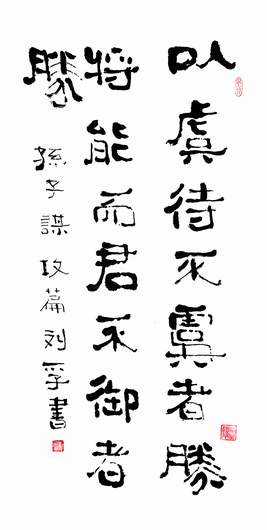 以虞待不虞者勝
將能而君不御者
勝
孫子謀攻篇刘孚書